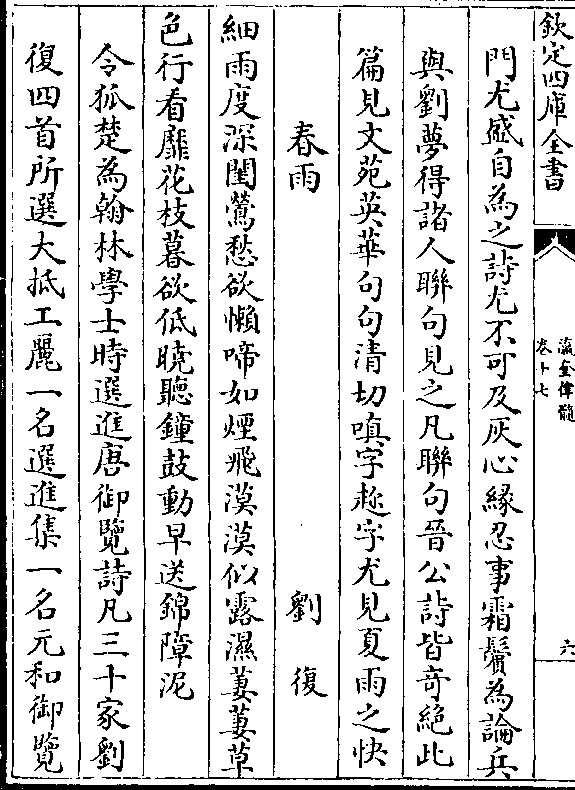 欽定四庫全書
瀛奎律髓
卷十七
六
門尤盛自為之詩尤不可及灰心緣忍事霜鬢為論兵
與劉夢得諸人聯句見之凡聯句晉公詩皆奇絶此
篇見文苑英華句句清切嗔字趂字尤見夏雨之快
春雨 劉復
細雨度深閨鶯愁欲懶啼如煙飛漠漠似露濕萋萋草
色行看靡花枝暮欲低曉聽鐘鼓動早送錦障泥
令狐楚為翰林學士時選進唐御覽詩凡三十家劉
復四首所選大抵工麗一名選進集一名元和御覽